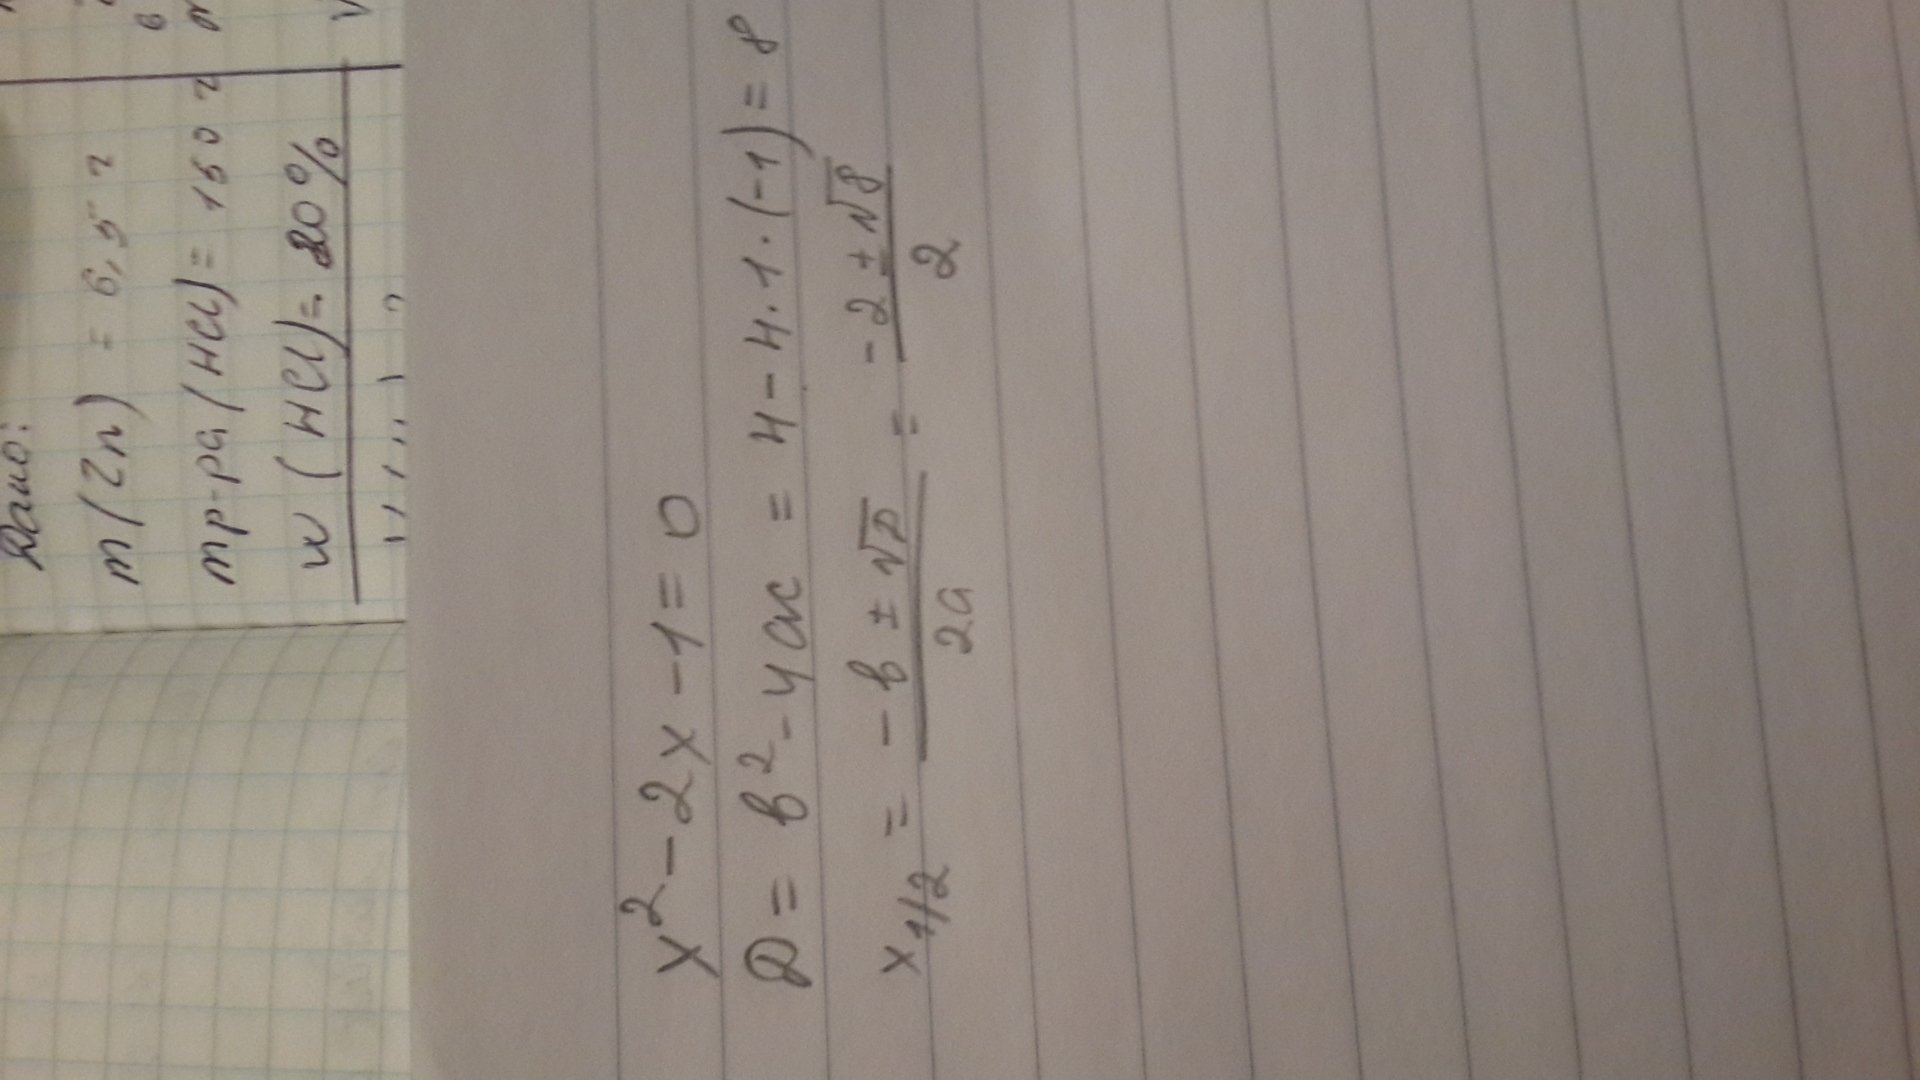 Дано:
m(Zn) = 6,5 г
mр-ра(HCl) = 150 г
w(HCl) = 20%
x² - 2x - 1 = 0
D = b² - 4ac = 4 - 4·1·(-1) = 8
x1/2 = (-b ± √D)/2a = (-2 ± √8)/2